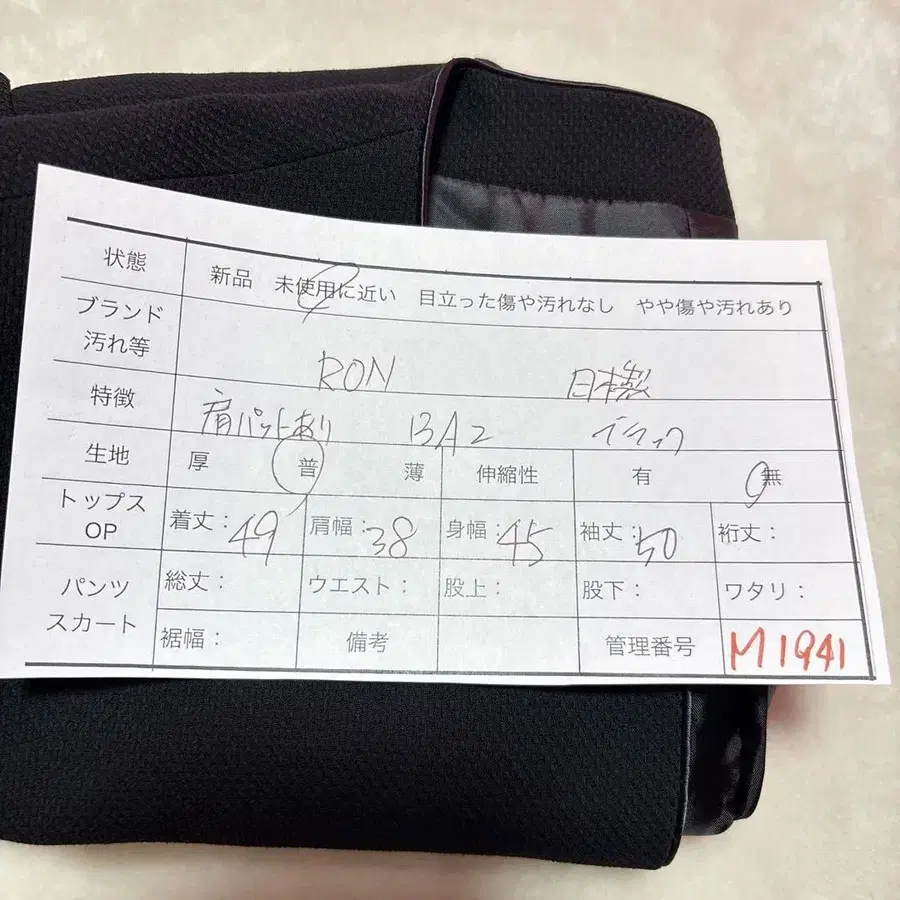 状態 新品 未使用に近い 目立った傷や汚れなし やや傷や汚れあり
ブランド
汚れ等
RON 日本製
特徴 肩パットあり BA2 ブラック
生地 厚 普 薄 伸縮性 有 無
トップス
OP
着丈:49 肩幅:38 身幅:45 袖丈:50 裄丈:
パンツ
スカート
総丈: ウエスト: 股上: 股下: ワタリ:
裾幅: 備考 管理番号 M1941